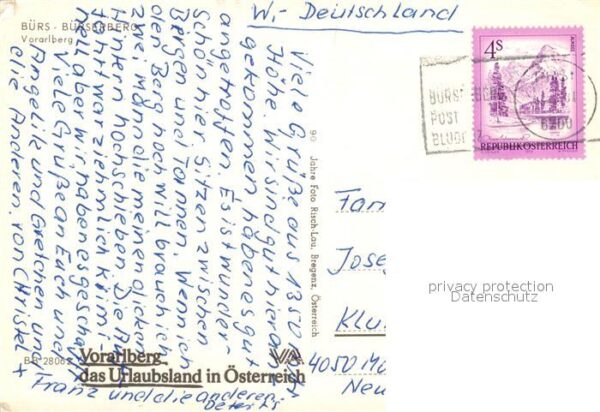 W.- Deutschland
BÜRS - BÜRSERBERG
Vorarlberg
4S
REPUBLIK ÖSTERREICH
BÜRS
POST
BLUD
6700
Viele Grüße aus 1350 m
Höhe. Wir sind gut hier
gekommen haben es gut
angetroffen. Es ist wunder-
schön hier. Sitzen zwischen
Bergen und Tannen. Wenn ich
den Berg hoch will brauch ich
zwei Mann die meinen dicken
hintern hochschieben. Die
fahrt war ziehmlich
aber wir haben es geschafft
Viele Grüße an Euch und
Angelik und Gretchen und
die Anderen. von Christel +
Franz und die anderen
90 Jahre Foto Risch-Lau, Bregenz, Österreich
Fam
Jose
Klu
4050 Mö
Neu
privacy protection
Datenschutz
Vorarlberg
das Urlaubsland in Österreich